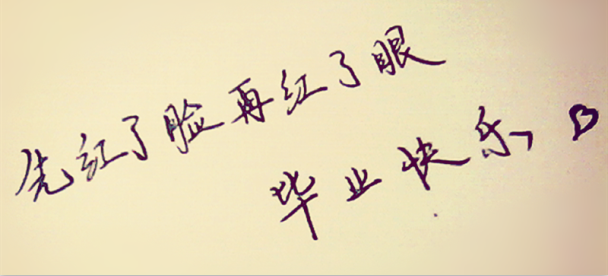 先红了脸再红了眼
毕业快乐